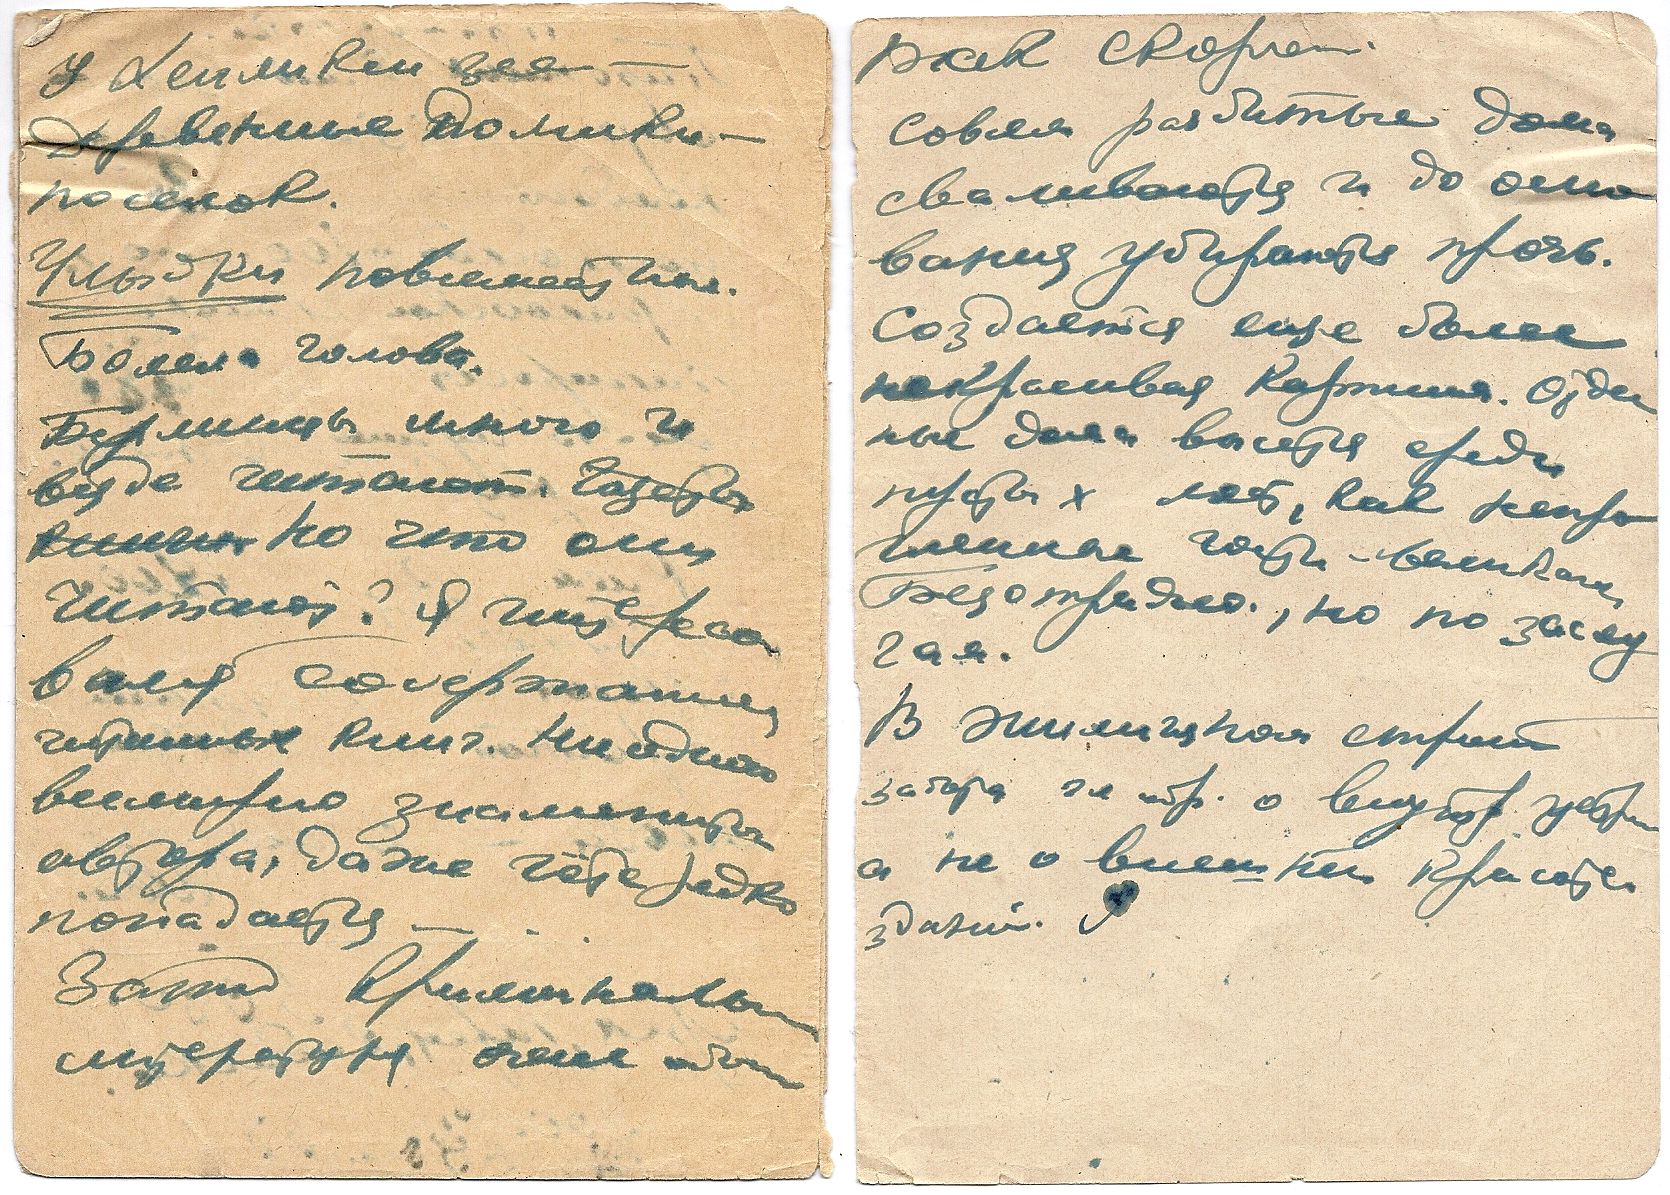 У Хеншкеизее
деревенные домики –
поселок.
Улыбки повсеместны.
Болела голова.
Берлинцы много и
везде читают. Газеты
книги но что они
читают? Я интересо
вался содержанием
читаемых книг. Ни одного
всемирно знаменитого
автора, даже Гёте редко
попадается – . .
Зато криминальная
литература очень обш
как скорлеп.
Совсем разбитые дома
сваливаются и до осно
вания убираются прочь.
Создается еще более
некрасивая картина. Отдел
ные дома высятся среди
пустых мест, как непро
шенные гости-великаны
Безотрадно, но по заслу
гам.
В жилищном строит
забота гл обр. о внутр. устр
а не о внешней красоте
зданий.